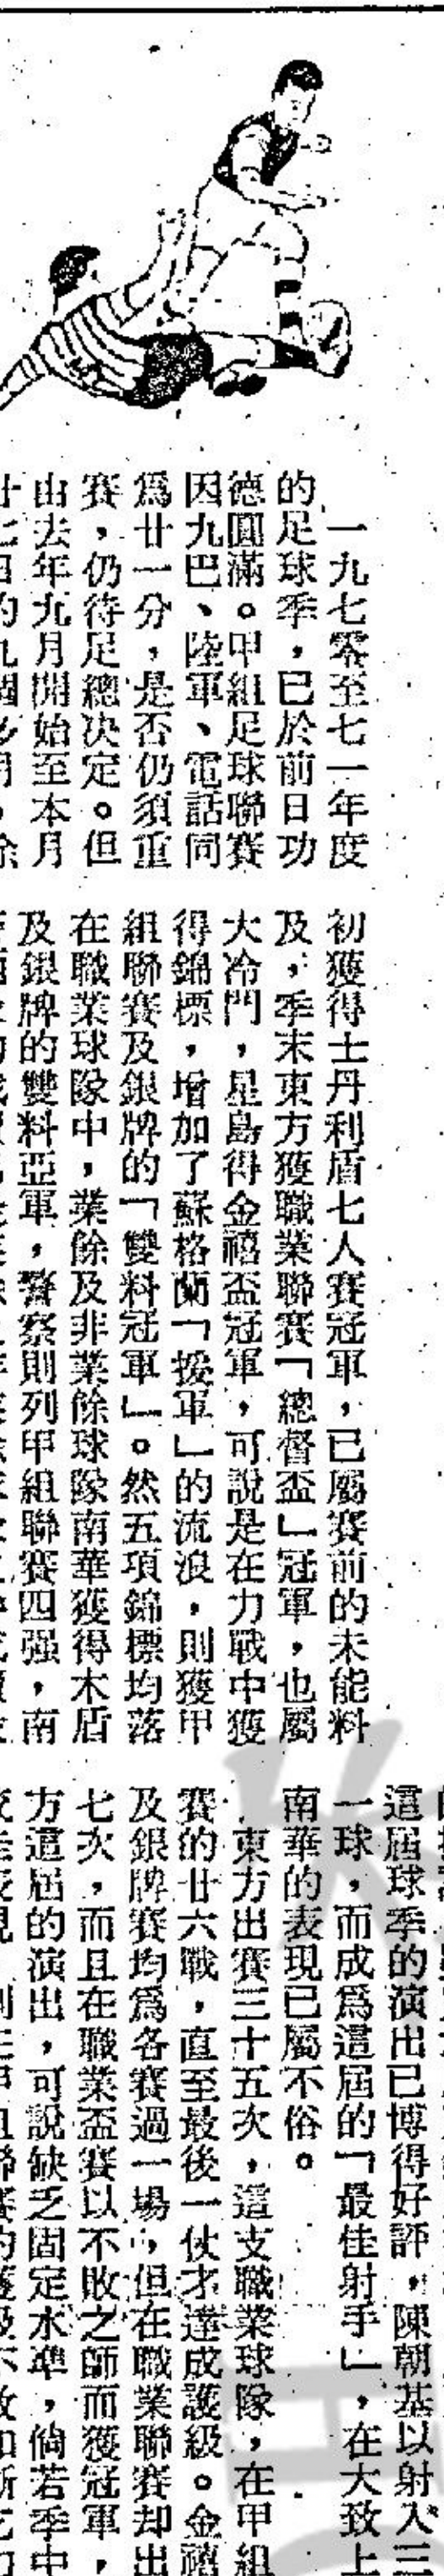 一九七零至七一年度
的足球季，已於前日功
德圓滿。甲組足球聯賽
因九巴、陸軍、電話同
爲廿一分，是否仍須重
賽，仍待足總决定。但
由去年九月開始至本月
初獲得士丹利盾七人賽冠軍，已屬賽前的未能料
及，季末東方獲職業聯賽「總督盃」冠軍，也屬
大冷門，星島得金禧盃冠軍，可說是在力戰中獲
得錦標，增加了蘇格蘭「援軍」的流浪，則獲甲
組聯賽及銀牌的「雙料冠軍」。然五項錦標均落
在職業球隊中，業餘及非業餘球隊南華獲得木盾
及銀牌的雙料亞軍，警察則列甲組聯賽四强，南
這屆球季的演出已博得好評，陳朝基以射入三
一球，而成爲這屆的「最佳射手」，在大致上
南華的表現已屬不俗。
東方出賽三十五次，這支職業球隊，在甲組
賽的廿六戰，直至最後一伙才達成護級。金禧
及銀牌賽均爲各賽過一場，但在職業聯賽却出
七次，而且在職業盃賽以不敗之師而獲冠軍，
方這屆的演出，可說缺乏固定水準，倘若季中